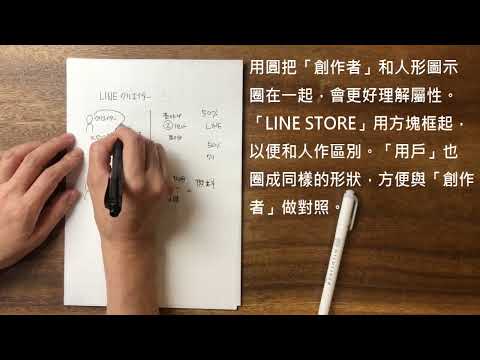 用圓把「創作者」和人形圖示
圈在一起，會更好理解屬性。
「LINE STORE」用方塊框起，
以便和人作區別。「用戶」也
圈成同樣的形狀，方便與「創作
者」做對照。
LINE クリエイター
50%
LINE
50%